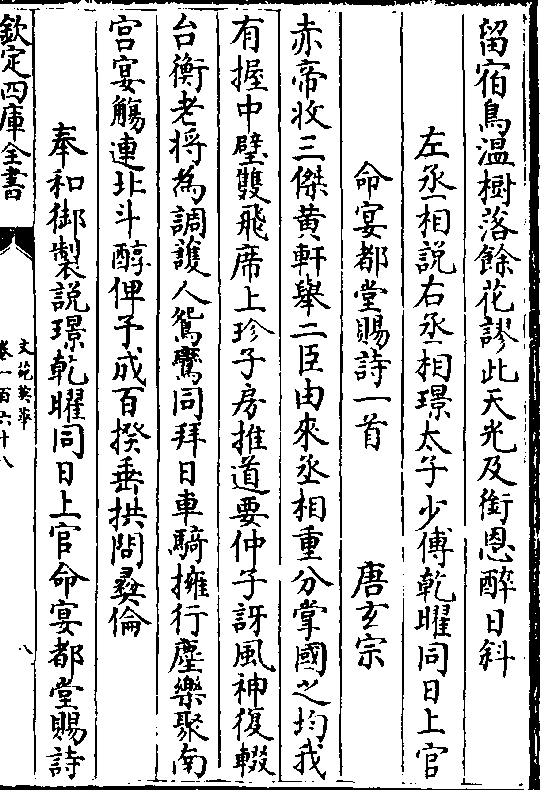 留宿鳥温樹落餘花謬此天光及銜恩醉日斜
左丞相說右丞相璟太子少傅乾曜同日上官
命宴都堂賜詩一首　唐玄宗
赤帝收三傑黄軒舉二臣由來丞相重分掌國之均我
有握中璧雙飛席上珍子房推道要仲子訝風神復輟
台衡老將為調護人鴛鸞同拜日車騎擁行塵樂聚南
宫宴觴連北斗醇俾予成百揆垂拱問彝倫
奉和御製說璟乾曜同日上官命宴都堂賜詩
欽定四庫全書
文苑英華
卷一百六十八
八